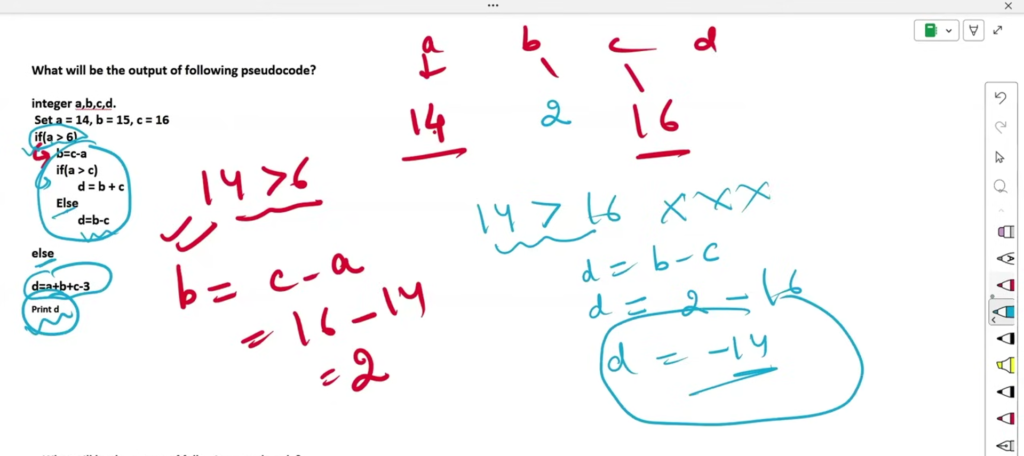 What will be the output of following pseudocode?
integer a,b,c,d.
Set a = 14, b = 15, c = 16
if(a > 6)
b=c-a
if(a > c)
d = b + c
Else
d=b-c
else
d=a+b+c-3
Print d
a b c d
14 2 16
14 > 6
b = c - a
= 16 - 14
= 2
14 > 16 x x x
d = b - c
d = 2 - 16
d = -14